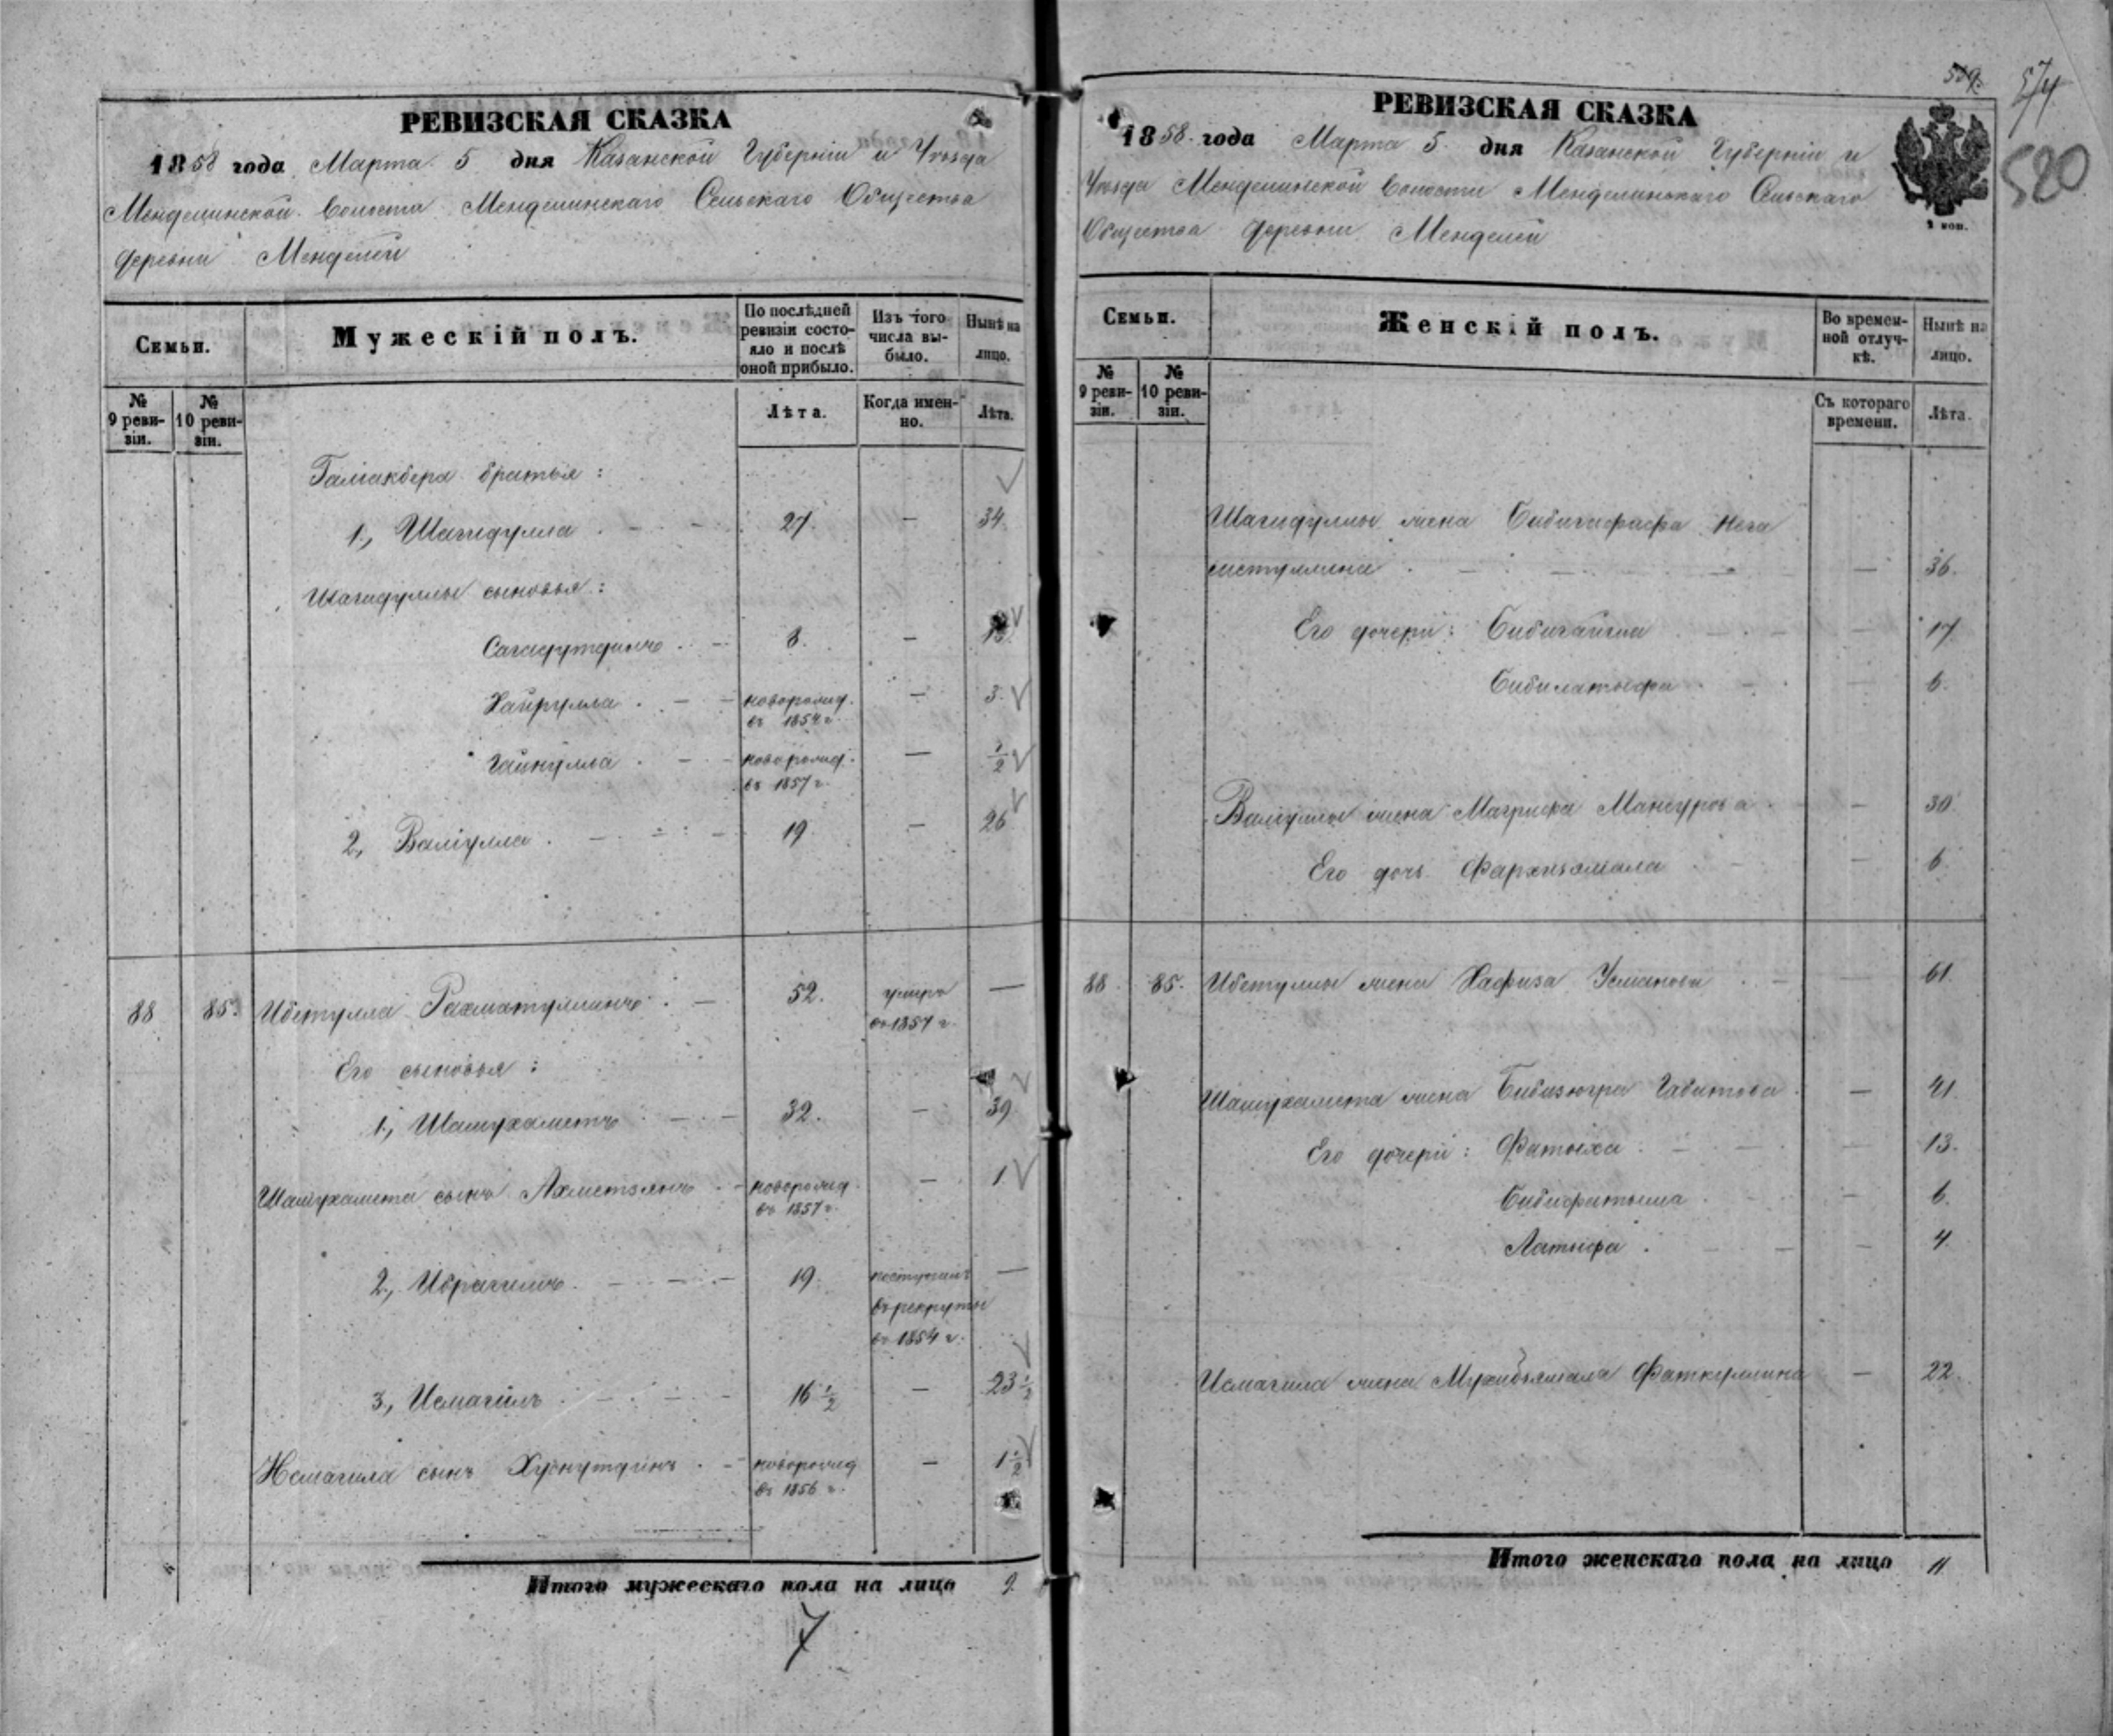 РЕВИЗСКАЯ СКАЗКА
1858 года Марта 5 дня Казанской Губерніи и Уѣзда
Менделинской Волости Менделинскаго Сельскаго Общества
деревни Менделей
Семьи.
Мужескій полъ.
По послѣдней ревизіи состояло и послѣ оной прибыло.
Изъ того числа выбыло.
Нынѣ на лицо.
№ 9 ревизіи.
№ 10 ревизіи.
Лѣта.
Когда именно.
Лѣта.
Галиакбера братья:
1, Шагидулла 27. — 34.
Шагидуллы сыновья:
Сагадутдинъ 8. —
Хайрулла новорожд. въ 1854 г. — 3.
Гайнулла новорожд. въ 1857 г. — ½
2, Валіулла 19 — 26
88 85. Ибетулла Рахматуллинъ 52. умеръ въ 1857 г. —
Его сыновья:
1, Шамухаметъ 32. — 39
Шамухамета сынъ Ахметзянъ новорожд. въ 1857 г. — 1
2, Ибрагимъ 19. поступилъ въ рекруты въ 1854 г. —
3, Исмагилъ 16 ½ — 23 ½
Исмагила сынъ Хуснутдинъ новорожд въ 1856 г. — 1 ½
Итого мужескаго пола на лицо 9.
7
РЕВИЗСКАЯ СКАЗКА
574
520
1858. года Марта 5. дня Казанской Губерніи и
Уѣзда Менделинской Волости Менделинскаго Сельскаго
Общества деревни Менделей
Семьи.
Женскій полъ.
Во временной отлучкѣ.
Нынѣ на лицо.
№ 9 ревизіи.
№ 10 ревизіи.
Съ котораго времени.
Лѣта.
Шагидуллы жена
— 36.
Его дочери: — 17
Бибилатыфа — 6.
Валіуллы жена Мансурова — 30.
Его дочь — 6.
88. 85. Ибетуллы жена Хафиза Усманова — 61.
Шамухамета жена Бибизюгра Габитова — 41.
Его дочери: Фатыха — 13.
Бибифатыма — 6.
Латыфа — 4.
Исмагила жена Мухибзямала Фаткуллина — 22.
Итого женскаго пола на лицо 11